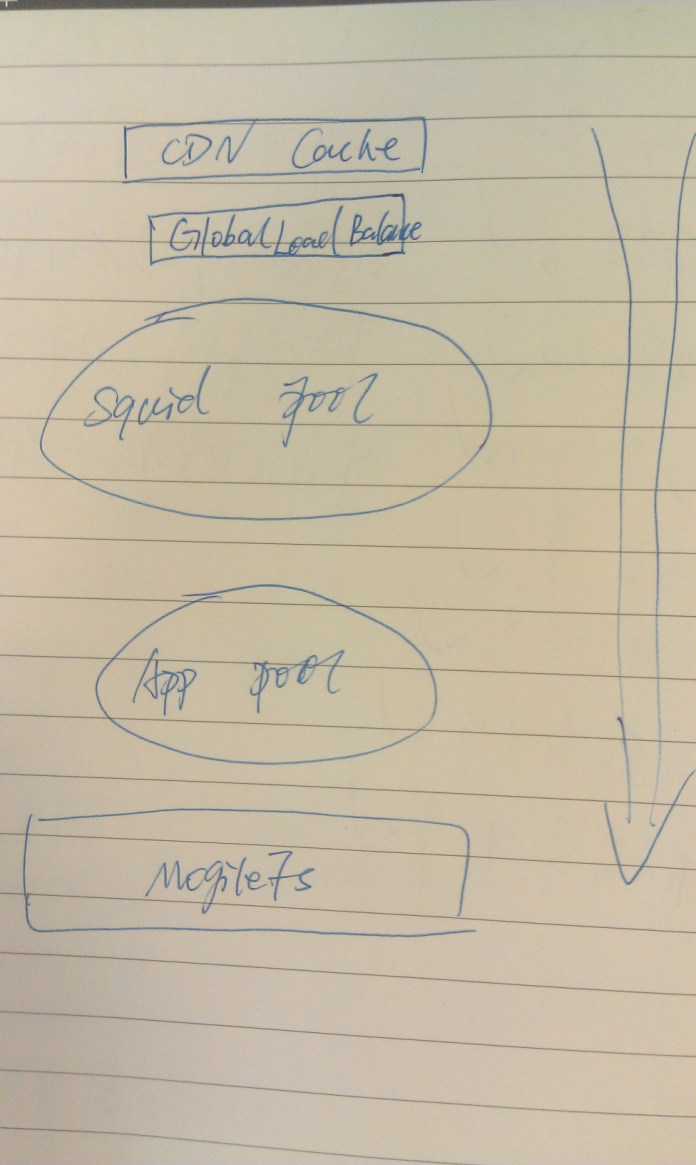 CDN Cache
Global Load Balance
Squid pool
App pool
MogileFs